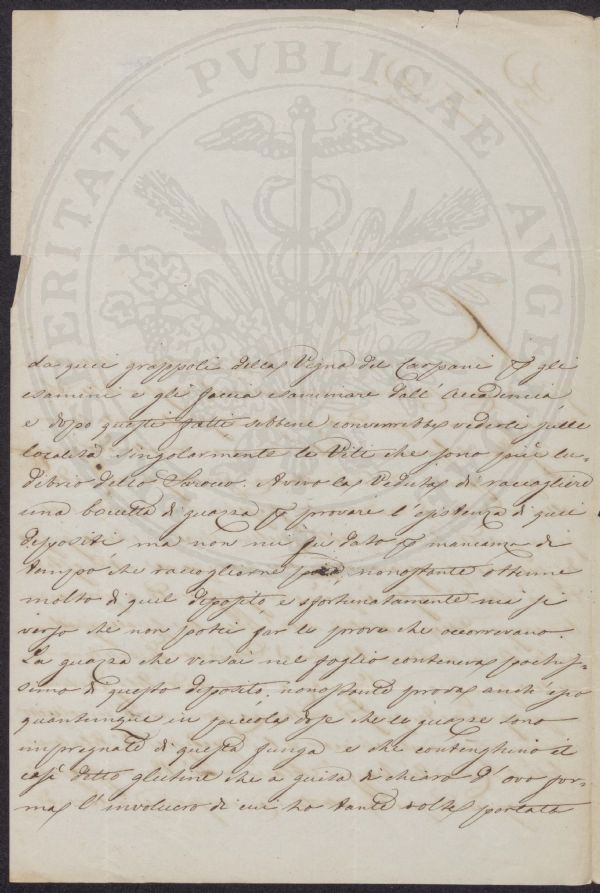 PROSPERITATI PVBLICAE AVGENDAE
da quei grappoli della Vigna del Carpani gli
esamini e gli faccia esaminare dall' Accademia
e dopo questi fatti sebbene converrebbe vederli sulle
località singolarmente le Viti che sono più lu-
dibrio dello Sirocco. Avevo la veduta di raccogliere
una boccetta di guazza provare l'esistenza di quei
depositi ma non mi fu dato mancanza di
tempo che raccoglierne poca nonostante ottenne
molto di quel deposito e sfortunatamente mi si
versò che non potei far le prove che occorrevano.
La guazza che versai nel foglio conteneva pochis-
simo di questo deposito. nonostante prova anch'esso
quantunque in piccola dose che le guazze sono
impregnate di questa funga e che contenghino il
così detto glutine che a guisa di chiaro d'ovo for-
ma l'involucro di cui ho tante volte portata